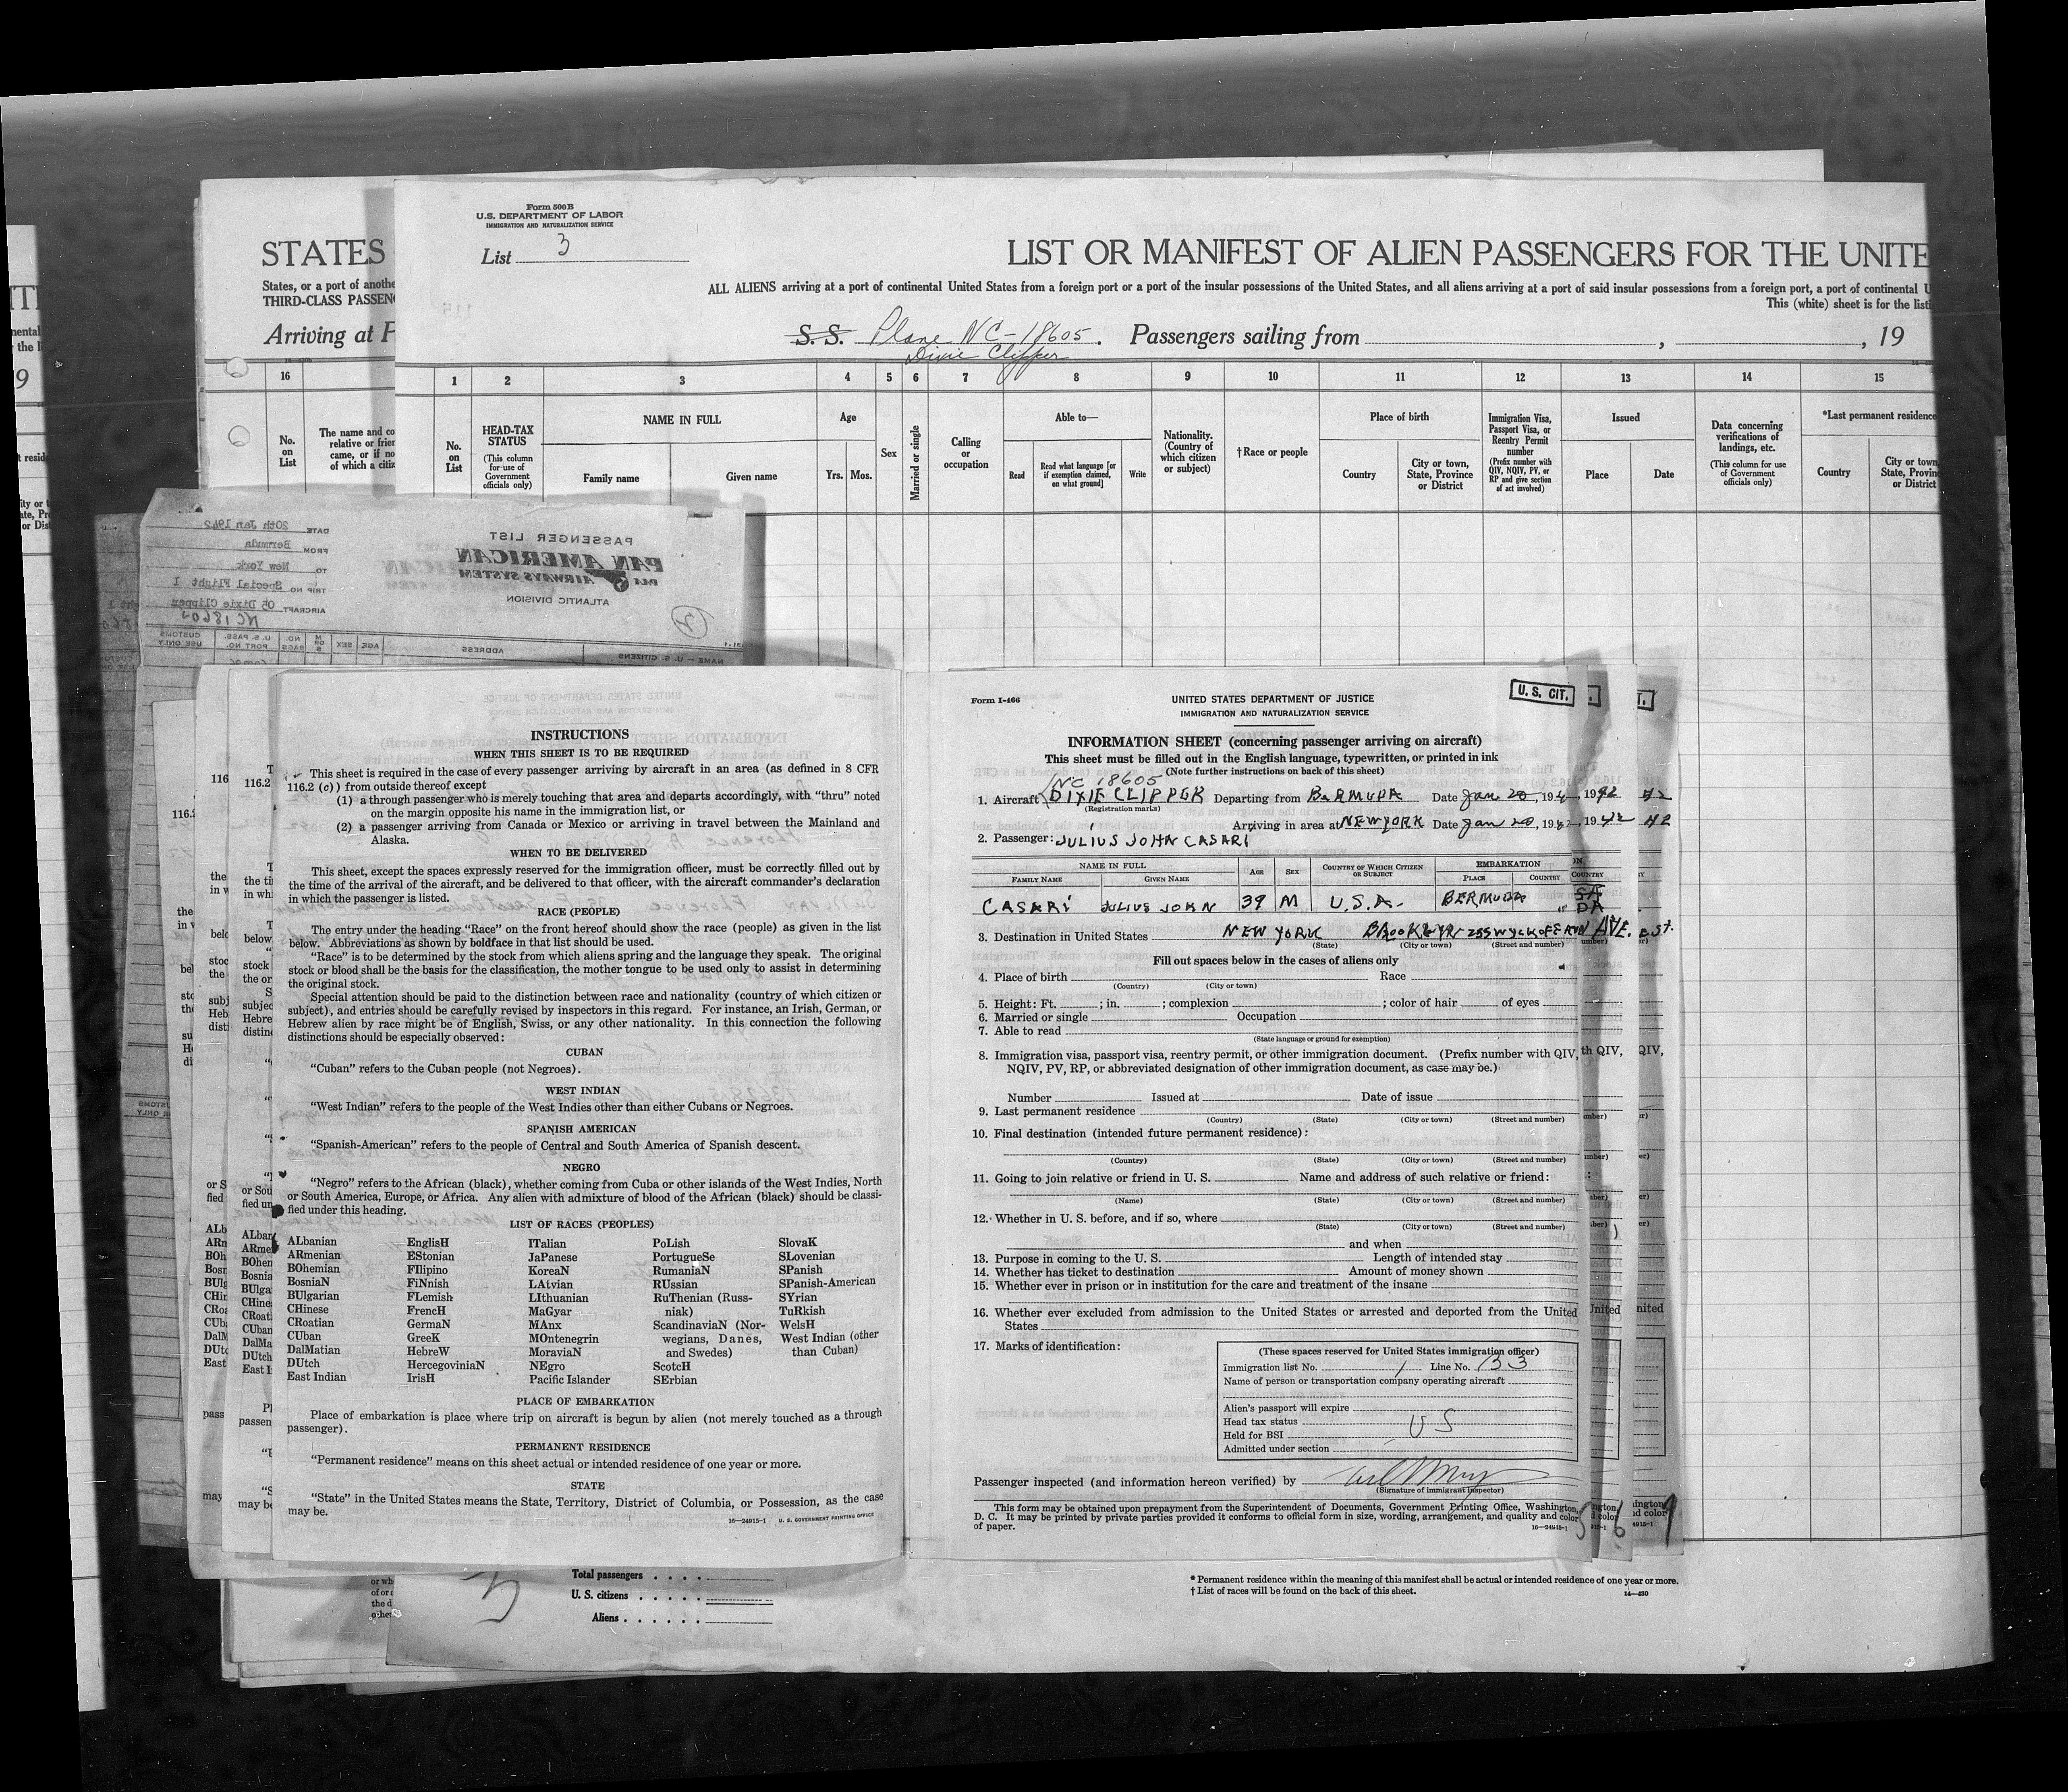 Form 500 B
U.S. DEPARTMENT OF LABOR
IMMIGRATION AND NATURALIZATION SERVICE
List 3
STATES
LIST OR MANIFEST OF ALIEN PASSENGERS FOR THE UNITE
States, or a port of anothe
THIRD-CLASS PASSEN
ALL ALIENS arriving at a port of continental United States from a foreign port or a port of the insular possessions of the United States, and all aliens arriving at a port of said insular possessions from a foreign port, a port of continental U
This (white) sheet is for the listi
Arriving at P
S. S. Plane NC-18605. Passengers sailing from , , 19
Dixie Clipper
16 1 2 3 4 5 6 7 8 9 10 11 12 13 14 15
No. on List
The name and co
relative or frien
came, or if no
of which a citiz
No. on List
HEAD-TAX STATUS
(This column for use of Government officials only)
NAME IN FULL
Family name
Given name
Age
Yrs. Mos.
Sex
Married or single
Calling or occupation
Able to—
Read
Read what language [or if exemption claimed, on what ground]
Write
Nationality. (Country of which citizen or subject)
†Race or people
Place of birth
Country
City or town, State, Province or District
Immigration Visa, Passport Visa, or Reentry Permit number
(Prefix number with QIV, NQIV, PV, or RP and give section of act involved)
Issued
Place
Date
Data concerning verifications of landings, etc.
(This column for use of Government officials only)
*Last permanent residence
Country
City or town, State, Provin or District
PASSENGER LIST
PAN AMERICAN
AIRWAYS SYSTEM
ATLANTIC DIVISION
DATE 20th Jan 1942
FROM Bermuda
TO New York
TRIP NO. Special Flight 1
AIRCRAFT 05 Dixie Clipper
NAME — U. S. CITIZENS
ADDRESS
AGE
SEX
U. S. PASSPORT NO.
CUSTOMS USE ONLY
INSTRUCTIONS
WHEN THIS SHEET IS TO BE REQUIRED
This sheet is required in the case of every passenger arriving by aircraft in an area (as defined in 8 CFR
116.2 (c)) from outside thereof except
(1) a through passenger who is merely touching that area and departs accordingly, with “thru” noted
on the margin opposite his name in the immigration list, or
(2) a passenger arriving from Canada or Mexico or arriving in travel between the Mainland and
Alaska.
WHEN TO BE DELIVERED
This sheet, except the spaces expressly reserved for the immigration officer, must be correctly filled out by
the time of the arrival of the aircraft, and be delivered to that officer, with the aircraft commander’s declaration
in which the passenger is listed.
RACE (PEOPLE)
The entry under the heading “Race” on the front hereof should show the race (people) as given in the list
below. Abbreviations as shown by boldface in that list should be used.
“Race” is to be determined by the stock from which aliens spring and the language they speak. The original
stock or blood shall be the basis for the classification, the mother tongue to be used only to assist in determining
the original stock.
Special attention should be paid to the distinction between race and nationality (country of which citizen or
subject), and entries should be carefully revised by inspectors in this regard. For instance, an Irish, German, or
Hebrew alien by race might be of English, Swiss, or any other nationality. In this connection the following
distinctions should be especially observed:
CUBAN
“Cuban” refers to the Cuban people (not Negroes).
WEST INDIAN
“West Indian” refers to the people of the West Indies other than either Cubans or Negroes.
SPANISH AMERICAN
“Spanish-American” refers to the people of Central and South America of Spanish descent.
NEGRO
“Negro” refers to the African (black), whether coming from Cuba or other islands of the West Indies, North
or South America, Europe, or Africa. Any alien with admixture of blood of the African (black) should be classi-
fied under this heading.
LIST OF RACES (PEOPLES)
ALbanian EnglisH ITalian PoLish SlovaK
ARmenian EStonian JaPanese PortugueSe SLovenian
BOhemian FIlipino KoreaN RumaniaN SPanish
BosniaN FiNnish LAtvian RUssian SPanish-American
BUlgarian FLemish LIthuanian RuThenian (Russ- SYrian
CHinese FrencH MaGyar niak) TuRkish
CRoatian GermaN MAnx ScandinaviaN (Nor- WelsH
CUban GreeK MOntenegrin wegians, Danes, West Indian (other
DalMatian HebreW MoraviaN and Swedes) than Cuban)
DUtch HercegoviniaN NEgro ScotcH
East Indian IrisH Pacific Islander SErbian
PLACE OF EMBARKATION
Place of embarkation is place where trip on aircraft is begun by alien (not merely touched as a through
passenger).
PERMANENT RESIDENCE
“Permanent residence” means on this sheet actual or intended residence of one year or more.
STATE
“State” in the United States means the State, Territory, District of Columbia, or Possession, as the case
may be.
16—24915-1 U. S. GOVERNMENT PRINTING OFFICE
Form I-466
UNITED STATES DEPARTMENT OF JUSTICE
IMMIGRATION AND NATURALIZATION SERVICE
U. S. CIT.
INFORMATION SHEET (concerning passenger arriving on aircraft)
This sheet must be filled out in the English language, typewritten, or printed in ink
(Note further instructions on back of this sheet)
NC 18605
1. Aircraft DIXIE CLIPPER Departing from BERMUDA Date Jan 20, 194
(Registration marks)
Arriving in area at NEW YORK Date Jan 20, 194
2. Passenger: JULIUS JOHN CASARI
NAME IN FULL
FAMILY NAME GIVEN NAME AGE SEX COUNTRY OF WHICH CITIZEN OR SUBJECT EMBARKATION PLACE COUNTRY
CASARI JULIUS JOHN 39 M U.S.A. BERMUDA
3. Destination in United States NEW YORK BROOKLYN 255 WYCKOFF AVE.
(State) (City or town) (Street and number)
Fill out spaces below in the cases of aliens only
4. Place of birth Race
(Country) (City or town)
5. Height: Ft. ; in. ; complexion ; color of hair of eyes
6. Married or single Occupation
7. Able to read
(State language or ground for exemption)
8. Immigration visa, passport visa, reentry permit, or other immigration document. (Prefix number with QIV,
NQIV, PV, RP, or abbreviated designation of other immigration document, as case may be.)
Number Issued at Date of issue
9. Last permanent residence
(Country) (State) (City or town) (Street and number)
10. Final destination (intended future permanent residence):
(Country) (State) (City or town) (Street and number)
11. Going to join relative or friend in U. S. Name and address of such relative or friend:
(Name) (State) (City or town) (Street and number)
12. Whether in U. S. before, and if so, where
(State) (City or town) (Street and number)
and when
13. Purpose in coming to the U. S. Length of intended stay
14. Whether has ticket to destination Amount of money shown
15. Whether ever in prison or in institution for the care and treatment of the insane
16. Whether ever excluded from admission to the United States or arrested and deported from the United
States
17. Marks of identification:
(These spaces reserved for United States immigration officer)
Immigration list No. 1 Line No. 33
Name of person or transportation company operating aircraft
Alien’s passport will expire
Head tax status US
Held for BSI
Admitted under section
Passenger inspected (and information hereon verified) by
(Signature of immigrant inspector)
This form may be obtained upon prepayment from the Superintendent of Documents, Government Printing Office, Washington,
D. C. It may be printed by private parties provided it conforms to official form in size, wording, arrangement, and quality and color
of paper.
16—24915-1
5 6
Total passengers
U. S. citizens
Aliens
* Permanent residence within the meaning of this manifest shall be actual or intended residence of one year or more.
† List of races will be found on the back of this sheet.
14—430